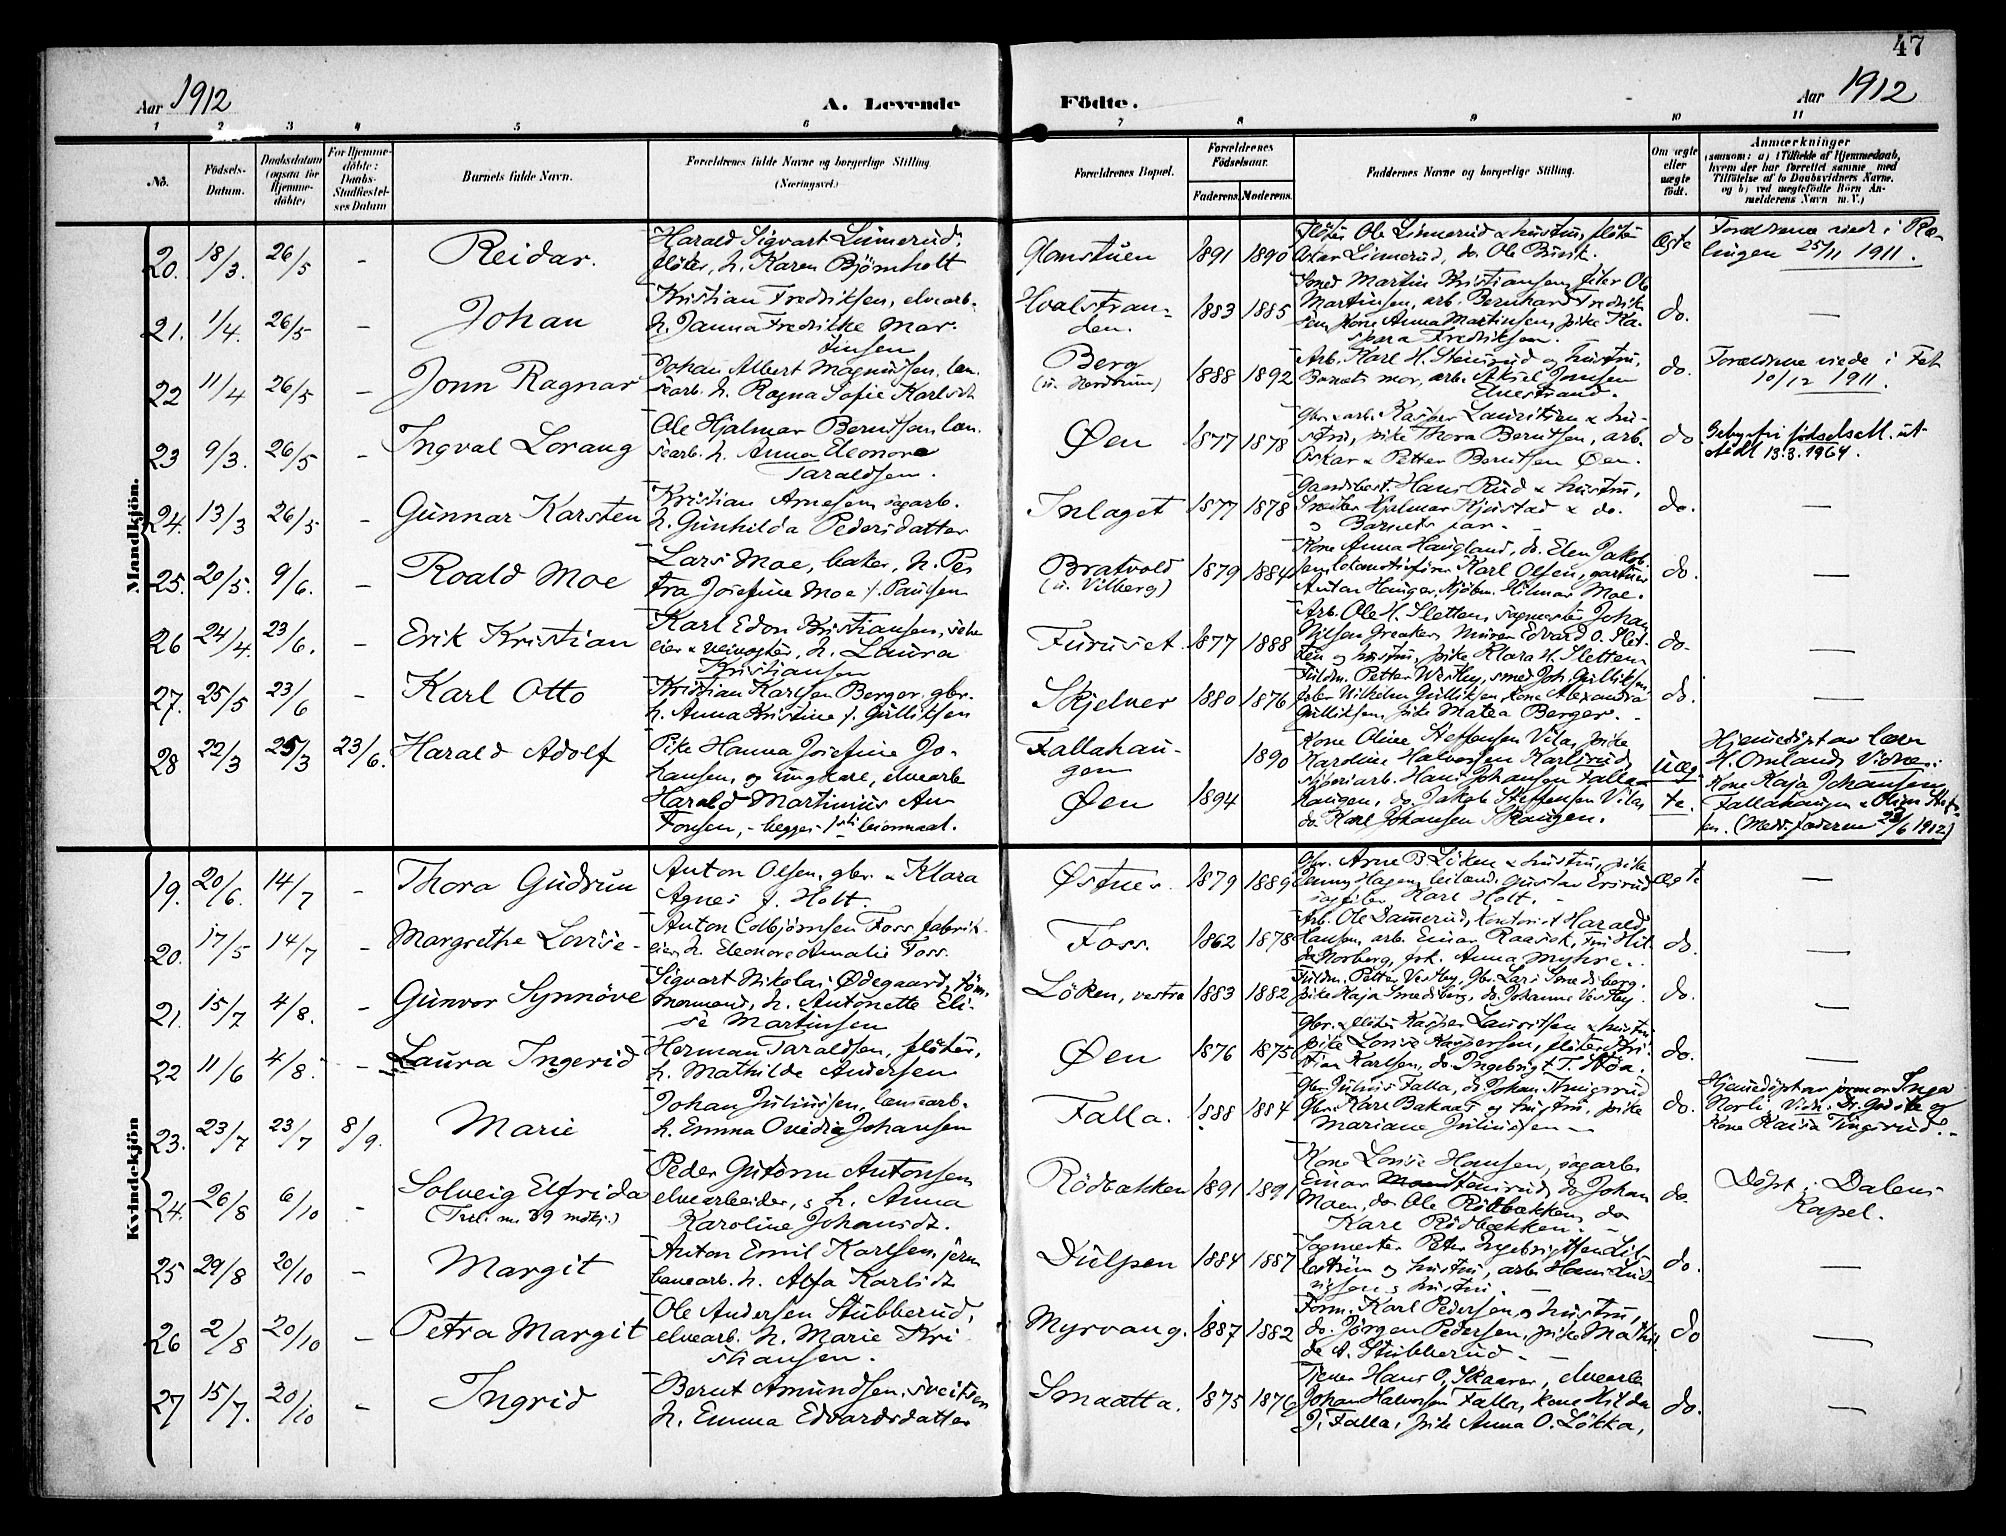 47
Aar 1912
A. Levende
Födte.
Aar 1912
1 2 3 4 5 6 7 8 9 10 11
No.
Födsels-
Datum.
Daabsdatum
(ogsaa for
Hjemme-
döbte)
For Hjemme-
döbte:
Daabs-
Stadfæstel-
ses Datum
Barnets fulde Navn.
Forældrenes fulde Navne og borgerlige Stilling.
(Næringsvei.)
Forældrenes Bopæl.
Forældrenes
Födselsaar.
Faderens. Moderens.
Faddernes Navne og borgerlige Stilling.
Om ægte
eller
uægte
födt.
Anmærkninger
(saasom: a) i Tilfælde af Hjemmedaab,
hvem der har forrettet samme, med
Tilföielse af to Daabsvidners Navne,
og b) ved uægtefödte Börn An-
melderens Navn m. V.)
Mandkjön.
20. 18/3. 26/5 - Reidar.
Harald Sigvart Linnerud,
flöter, h. Karen Björnholt
Glomstuen 1891 1890
Flöter Ole Linnerud & hustru, flöter
Oskar Linnerud, do. Ole
Ægte
Forældrene viede i Ræ-
lingen 25/11 1911.
21. 1/4. 26/5 - Johan
Kristian Fredriksen, elvearb.
h. Janna Fredrikke Mar-
tinsen
Hvalstran-
den. 1883 1885
Smed Martin Kristiansen, filer Ole
Martinsen, arb. Bernhard Fredrik
sen, kone Anna Martinsen, pike Ka-
spara Fredriksen.
do. -
22 11/4 26/5 - Jonn Ragnar
Johan Albert Magnussen, læn-
searb. h. Ragna Sofie Karlsdt.
Berg
(u. Nordrum) 1888 1892
Arb. Karl H. Stensrud og hustru,
Barnets mor, arb. Aksel Jensen
Elvestrand.
do.
Forældrene viede i Fet
10/12 1911.
23 9/3. 26/5 - Ingval Lorang
Ole Hjalmar Berntsen, læn-
searb. h. Anna Eleonore
Taraldsen.
Øen 1877 1878
Gbr. & arb. Kasper Lauritsen & hu-
stru, pike Thora Berntsen, arb.
Oskar & Petter Berntsen Øen.
do
Gebyrfri fødselsatt. ut-
stedt 13.3.1964.
24. 13/3 26/5 - Gunnar Karsten
Kristian Arnesen, sagarb.
h. Gunhilda Pedersdatter
Inlaget 1877 1878
Gaardsbest. Hans Rud & hustru,
Snekker Hjalmar Kjustad & do.
og Barnets far.
do. -
25. 20/5. 9/6. - Roald Moe
Lars Moe, baker, h. Pe-
tra Josefine Moe f. Paulsen
Bratvold
(u. Vilberg) 1879 1884
Kone Anna Haugland, do. Elen Jakob-
sen, lokomotivförer Karl Olsen, gartner
Anton Hauger, Kjöbm. Hilmar Moe.
do. -
26 24/4. 23/6. - Erik Kristian
Karl Edon Kristiansen,
eier & veivogter, h. Laura
Kristiansen
Furuset. 1877 1888
Arb. Ole H. Sletten, sagmester Johan
Nilsen Greaker, Murer Edvard O. Slet-
ten og hustru, pike Klara H. Sletten
do. -
27. 25/5 23/6 - Karl Otto
Kristian Karlsen Berger, gbr.
h. Anna Kristine f. Gulliksen
Skjelver 1880 1876
Fuldm. Petter Westby, smed Joh. Gulliksen
Vilhelm Gulliksen, kone Alexandra
Gulliksen, pike Matea Berger.
do. -
28 22/3 25/3 23/6. Harald Adolf
Pike Hanna Josefine Jo-
hansen, og ungkarl, elvearb.
Harald Martinius An-
tonsen, - begges 1ste leiermaal.
Fallahau-
gen 1890
Øen 1894
Kone Oline Steffensen Vila, pike
Karoline Halvorsen Karlsrud,
arb. Hans Johansen Falla-
haugen, do. Jakob Steffensen Vila
do. Karl Johansen Skaugen.
Uæg-
te.
Hjemmedöpt av lærer
H. Omland. Vidner:
Kone Kaja Johansen
Fallahaugen & Oline Stef-
fen. (Meds. faderen 23/6 1912)
Kvindekjön
19. 20/6. 14/7 - Thora Gudrun
Anton Olsen, gbr. & Klara
Agnes f. Holt.
Østnes. 1879 1889
Gbr. Arne B. Löken & hustru, pike
Jenny Hagen, Gustav
sagfiler Karl Holt.
ægte -
20. 17/5 14/7 - Margrethe Lovise
Anton Colbjörnsen Foss, fabrik-
eier, h. Eleonore Amalie Foss.
Foss. 1862 1878
Arb. Ole Dammerud, kontorist Harald
Hansen, arb. Einar Raasok, Fru Hil-
da Norberg, frk. Anna Myhre.
do. -
21. 15/7 4/8. - Gunvor Synnöve
Sigvart Nikolai Ødegaard, töm-
mermand, h. Antonette Eli-
se Martinsen
Löken, vestre 1883 1882
Fuldm. Petter Vestby, Gbr. Lars Smedsberg,
pike Kaja Smedsberg, do. Johanne Vestby.
do. -
22 11/6 4/8. - Laura Ingerid
Herman Taraldsen, flöter,
h. Mathilde Andersen
Øen 1876 1875
Gbr. & flöter Kasper Lauritsen & hustru
pike Lovise Kaspersen, flöter Kri-
stian Karlsen, do. Ingebrigt T. Stöa.
do. -
23. 23/7 23/7 8/9. Marie
Johan Juliussen, lænsearb.
h. Emma Ovidia Johansen
Falla. 1888 1884
Gbr. Julius Falla, do. Johan Tingsrud
Gbr. Karl Baknes og hustru, pike
Mariane Juliussen
do.
Hjemmedöpt av jormor Inga
Norli. Vidn.: Dr. Godske og
Kone Kaisa Tingsrud.
24. 26/8 6/10 - Solveig Elfrida
(Tvil. m. 39 mdkj.)
Peder Gutorm Antonsen
elvearbeider, & h. Anna
Karoline Johansdt.
Rödbækken 1891 1891
Kone Lovise Hansen, sagarb.
Einar Stensrud, do. Johan
Moen, do. Ole Rödbækken, do
Karl Rödbækken.
do.
Döpt i Dalens
Kapel.
25 29/8 20/10 - Margit
Anton Emil Karlsen, jern-
banearb. h. Alfa Karlsdt.
Dulpen 1884 1887
Sagmester Peter Ingebrigtsen Lil-
leström og hustru, arb. Hans Lud-
vigsen & hustru.
do. -
26 2/8 20/10 - Petra Margit
Ole Andersen Stubberud,
elvearb. h. Marie Kri-
stiansen.
Myrvang. 1887 1882
Form. Karl Pedersen, og hustru,
do. Jörgen Pedersen, pike Mathil-
de A. Stubberud.
do -
27 15/7. 20/10 - Ingrid
Bernt Amundsen, sveitser
h. Emma Edvardsdatter
Smaatta. 1875 1876
Tjener Hans O. Skaarer, elvearb.
Johan Halvorsen Falla, kone Hilda
J. Falla, pike Anna O. Lökka,
do. -